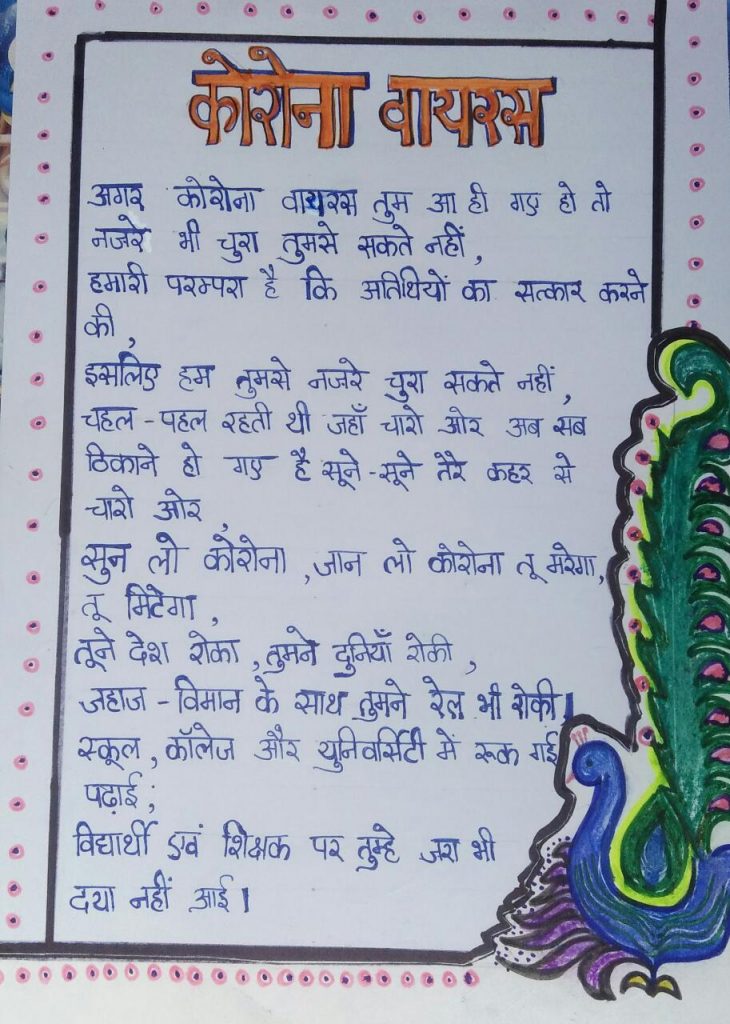 कोरोना वायरस
अगर कोरोना वायरस तुम आ ही गए हो तो
नजरे भी चुरा तुमसे सकते नहीं,
हमारी परम्परा है कि अतिथियों का सत्कार करने
की,
इसलिए हम तुमसे नजरे चुरा सकते नहीं,
चहल-पहल रहती थी जहाँ चारो ओर अब सब
ठिकाने हो गए है सूने-सूने तेरे कहर से
चारो ओर,
सुन लो कोरोना, जान लो कोरोना तू मरेगा,
तू मिटेगा,
तूने देश रोका, तुमने दुनियाँ रोकी,
जहाज-विमान के साथ तुमने रेल भी रोकी।
स्कूल, कॉलेज और युनिवर्सिटी में रूक गई
पढ़ाई;
विद्यार्थी एवं शिक्षक पर तुम्हे जरा भी
दया नहीं आई।